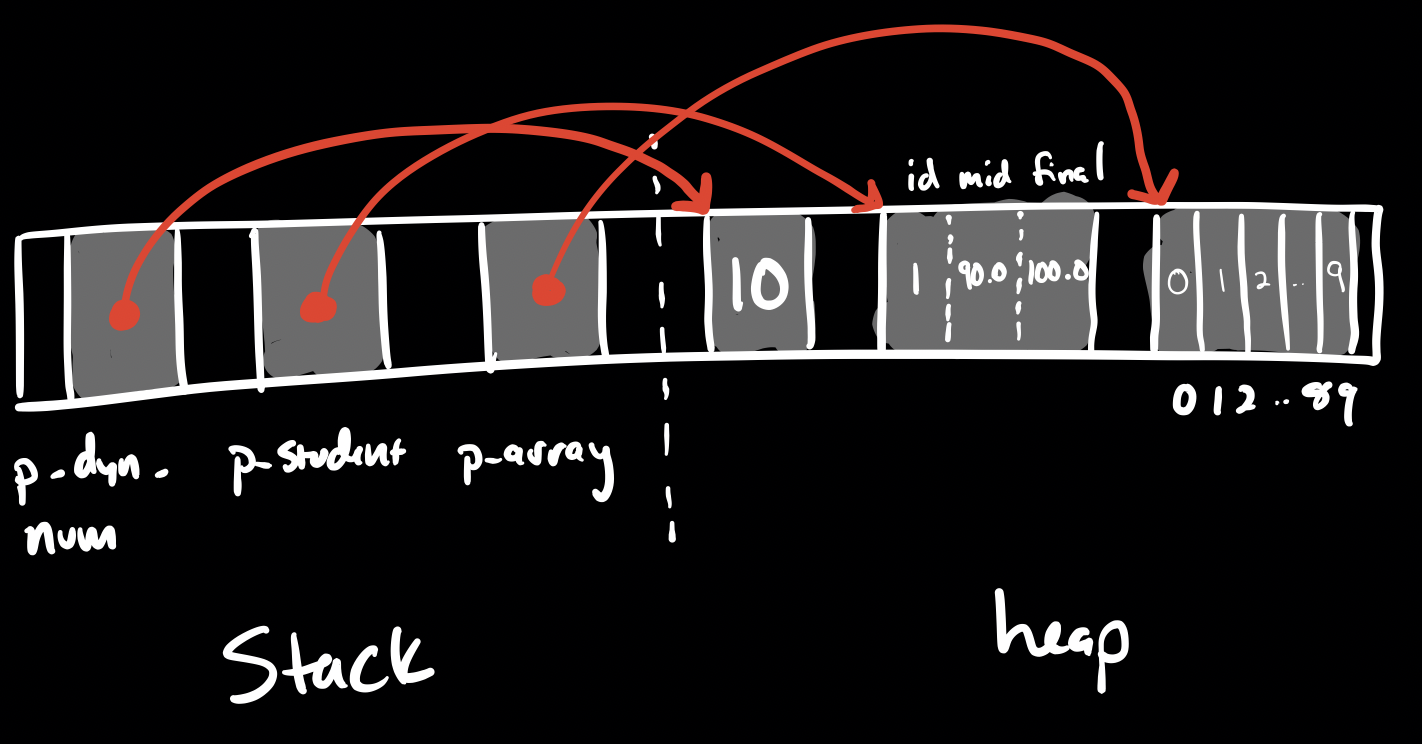 id mid final
10 1 90.0 100.0 0 1 2 .. 9
0 1 2 .. 8 9
p-dyn-
num
p-student
p-array
Stack
heap